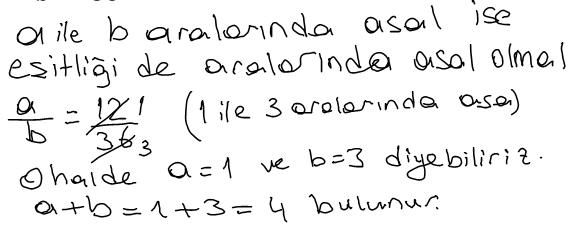 a ile b aralarında asal ise
eşitliği de aralarında asal olmal
a/b = 12/36 1/3 (1 ile 3 aralarında asal)
O halde a=1 ve b=3 diyebiliriz.
a+b=1+3=4 bulunur.